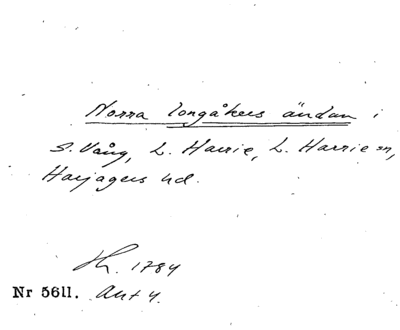 Norra långåkers ändan i
S. Vång, L. Harrie, L. Harrie sn,
Harjagers hd.
Th. 1784
Nr 5611. Akt 4.